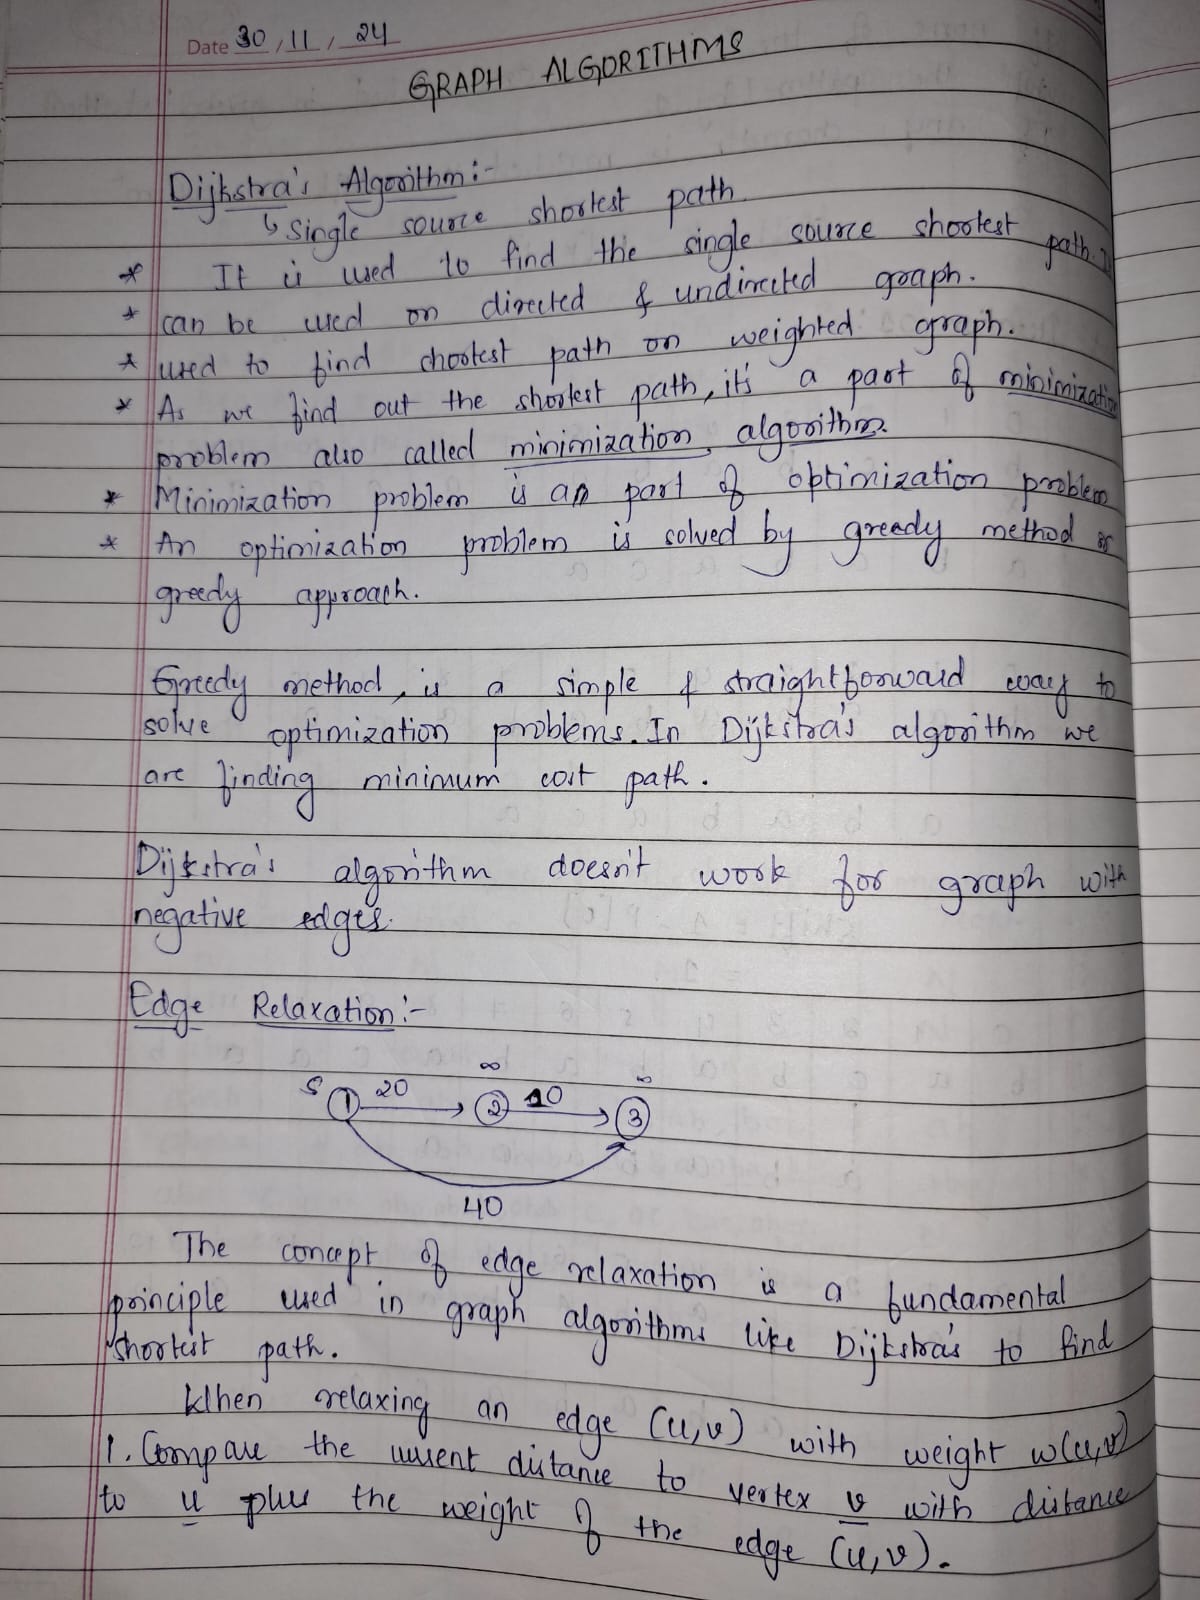 Date 30/11/24
GRAPH ALGORITHMS
Dijkstra's Algorithm:-
↳ Single source shortest path.
* It is used to find the single source shortest path.
* can be used on directed & undirected graph.
* used to find shortest path on weighted graph.
* As we find out the shortest path, it's a part of minimization
problem also called minimization algorithm.
* Minimization problem is an part of optimization problem
* An optimization problem is solved by greedy method or
greedy approach.
Greedy method, is a simple & straightforward way to
solve optimization problems. In Dijkstra's algorithm we
are finding minimum cost path.
Dijkstra's algorithm doesn't work for graph with
negative edges.
Edge Relaxation:-
∞ ∞
S 1 20 2 10 3
40
The concept of edge relaxation is a fundamental
principle used in graph algorithms like Dijkstra's to find
shortest path.
When relaxing an edge (u,v) with weight w(u,v)
1. Compare the current distance to vertex v with distance
to u plus the weight of the edge (u,v).